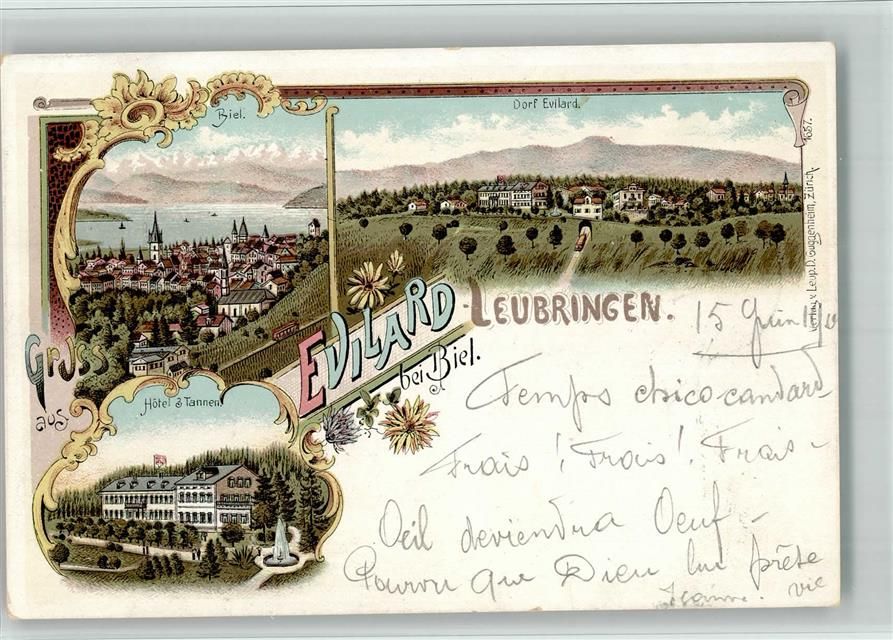 Biel.
Dorf Evilard.
1657.
Verlag v. Leop. D. Guggenheim, Zürich.
Gruss
aus
EVILARD-LEUBRINGEN.
bei Biel.
Hôtel 3 Tannen.
15 Juin
Temps chicocandard
Frais! Frais! Frais-
Oeil deviendra Oeuf-
Pourvu que Dieu lui prête
vie
Jeanne.